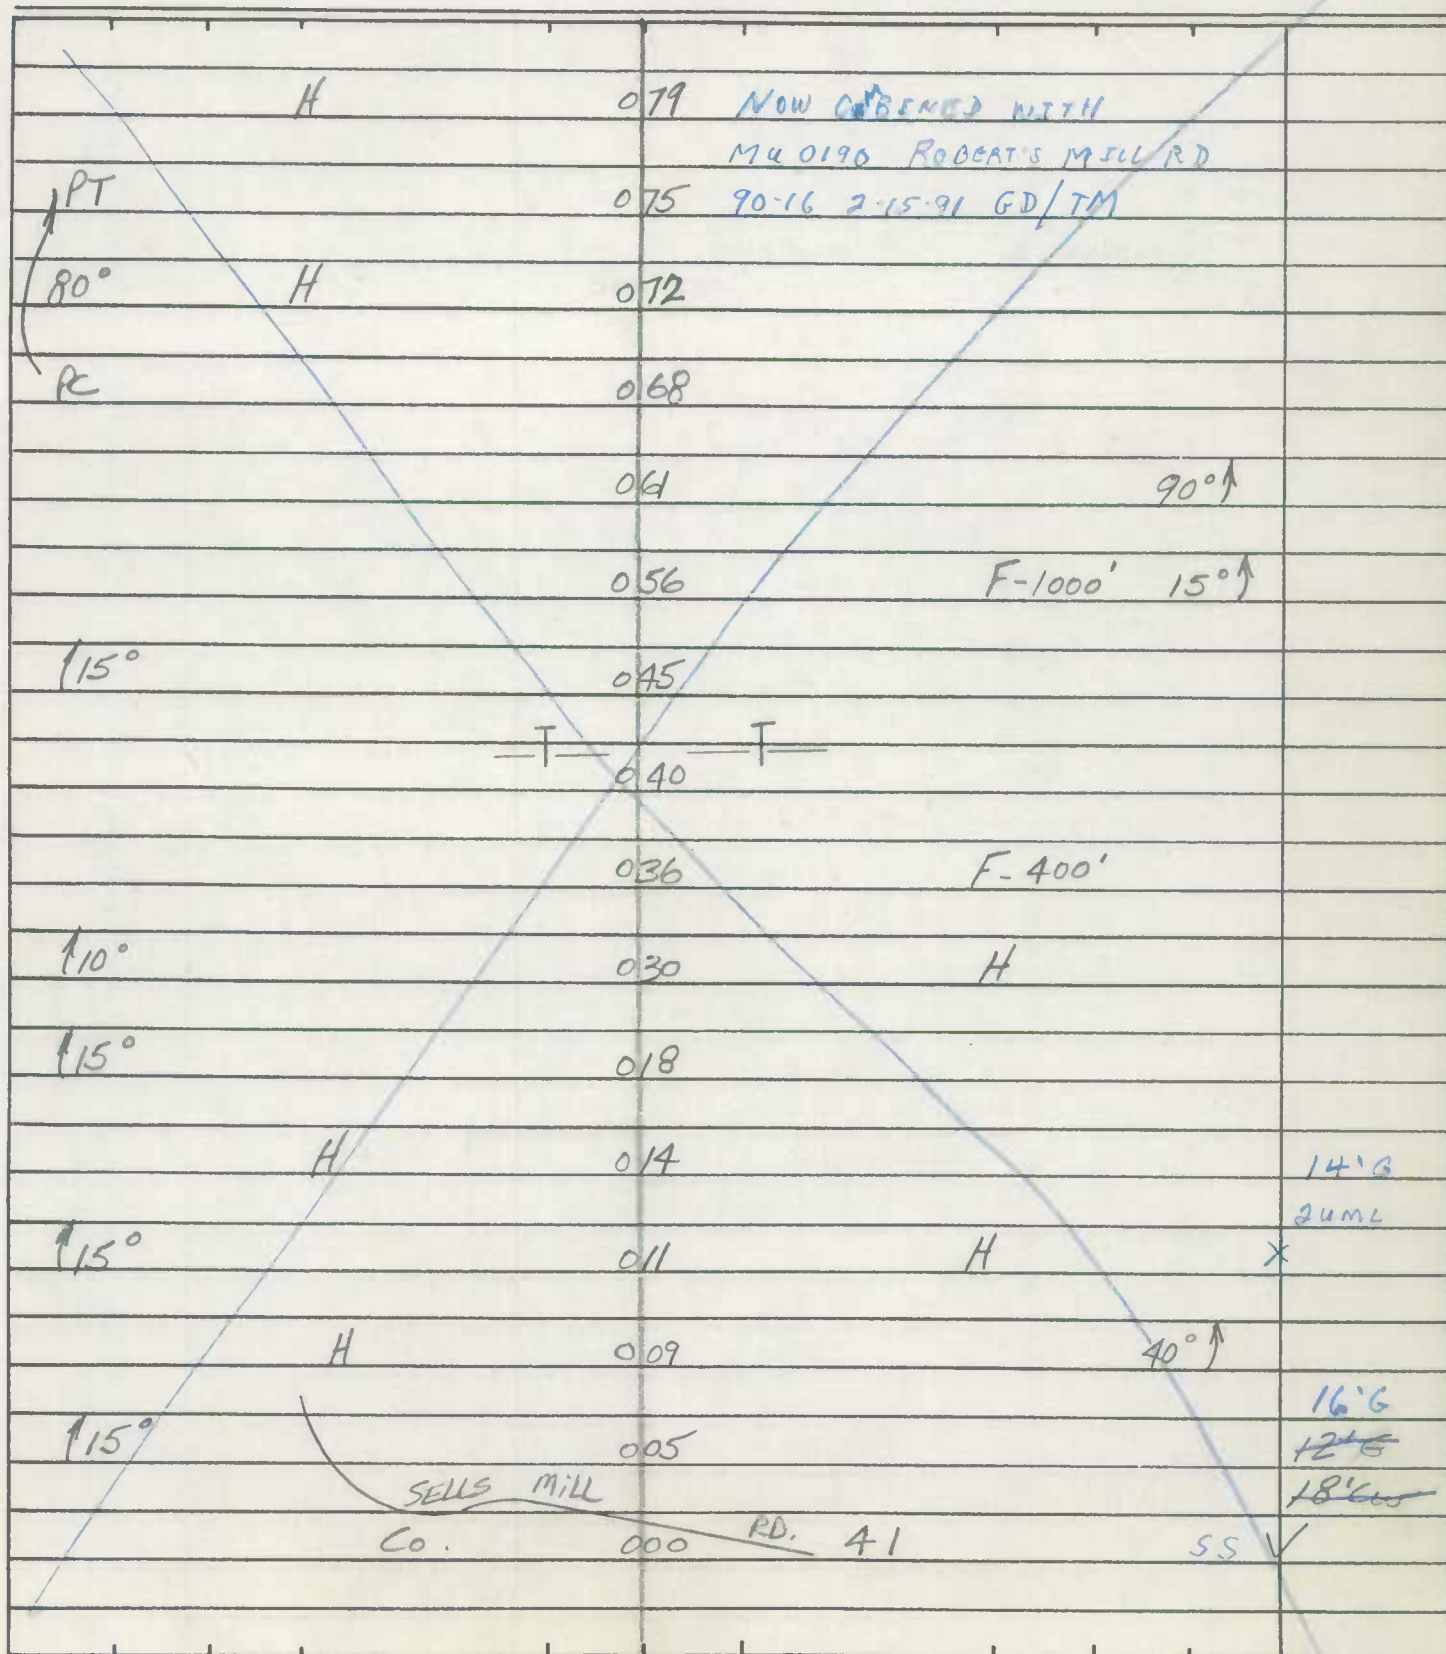 H 079 NOW COMBINED WITH
MU 0190 ROBERT'S MILL RD
PT 075 90-16 2-15-91 GD/TM
80° H 072
PC 068
061 90°
056 F-1000' 15°
15° 045
T T
040
036 F-400'
10° 030 H
15° 018
H 014 14'G
15° 011 H X
H 009 40°
16'G
15° 005 12'G
SELLS MILL
Co. 000 RD. 41 SS